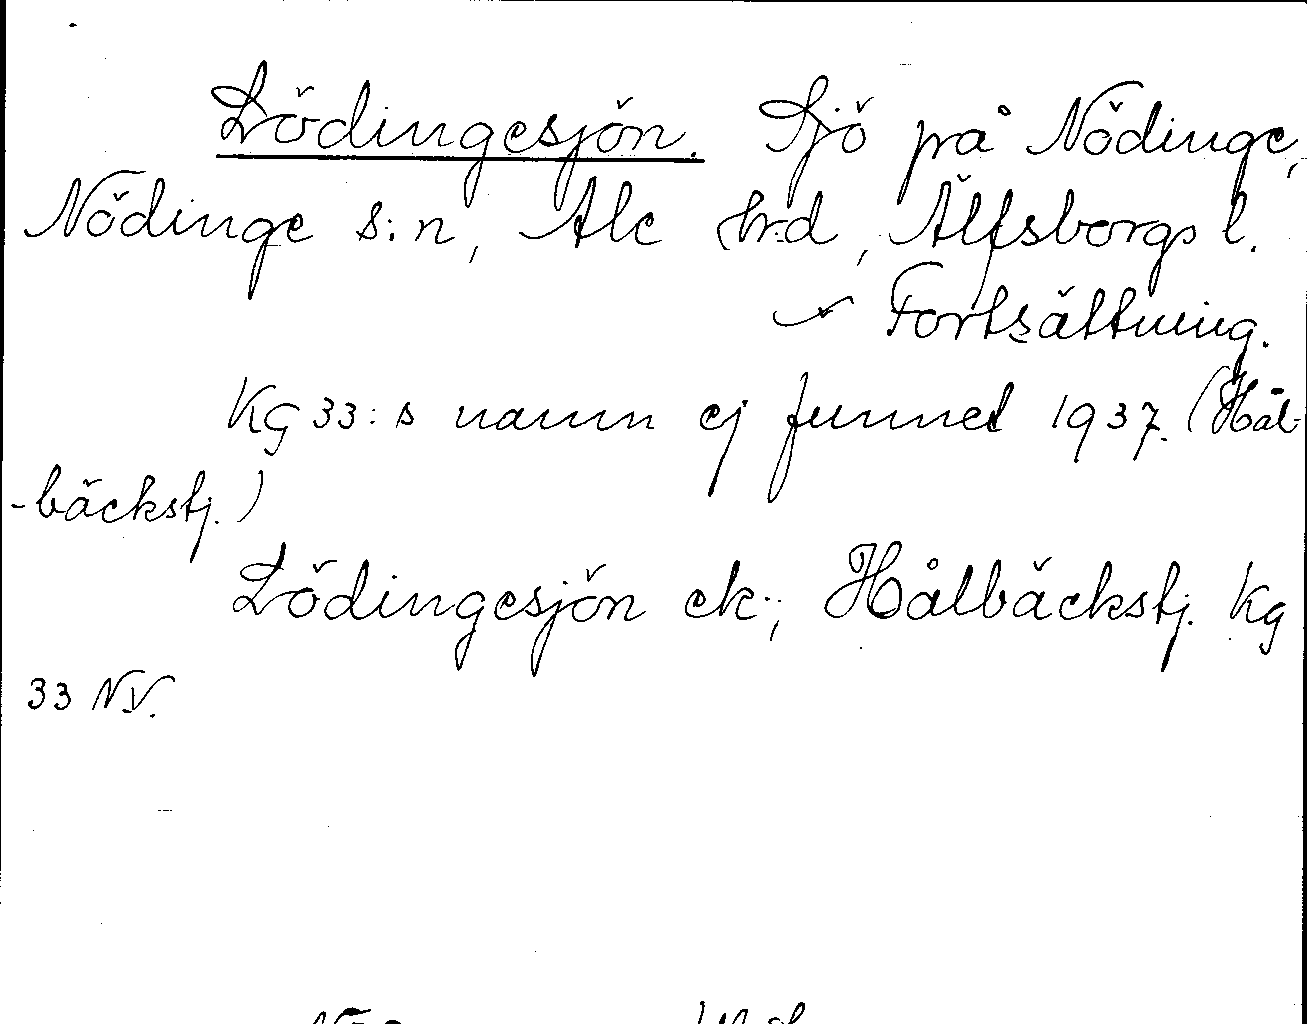 Lödingesjön. Sjö på Nödinge,
Nödinge s:n, Ale hrd, Älfsborgs l.
Fortsättning.
Kg 33:s namn ej funnet 1937. (Hål-
-bäckstj.)
Lödingesjön ek.; Hålbäckstj. Kg
33 NV.